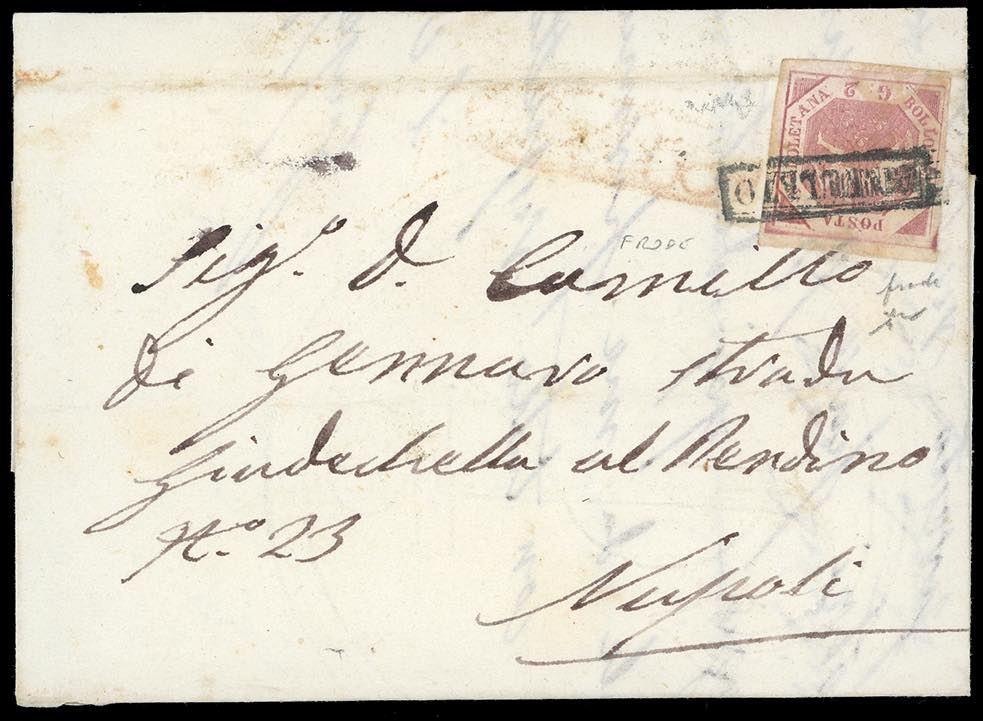 G. 2
BOLLO
POSTA
NAPOLETANA
ANNULLATO
FRODE
frode
Sig.r D. Camillo
di Gennaro strada
Giudechella al Pendino
N.o 23
Napoli